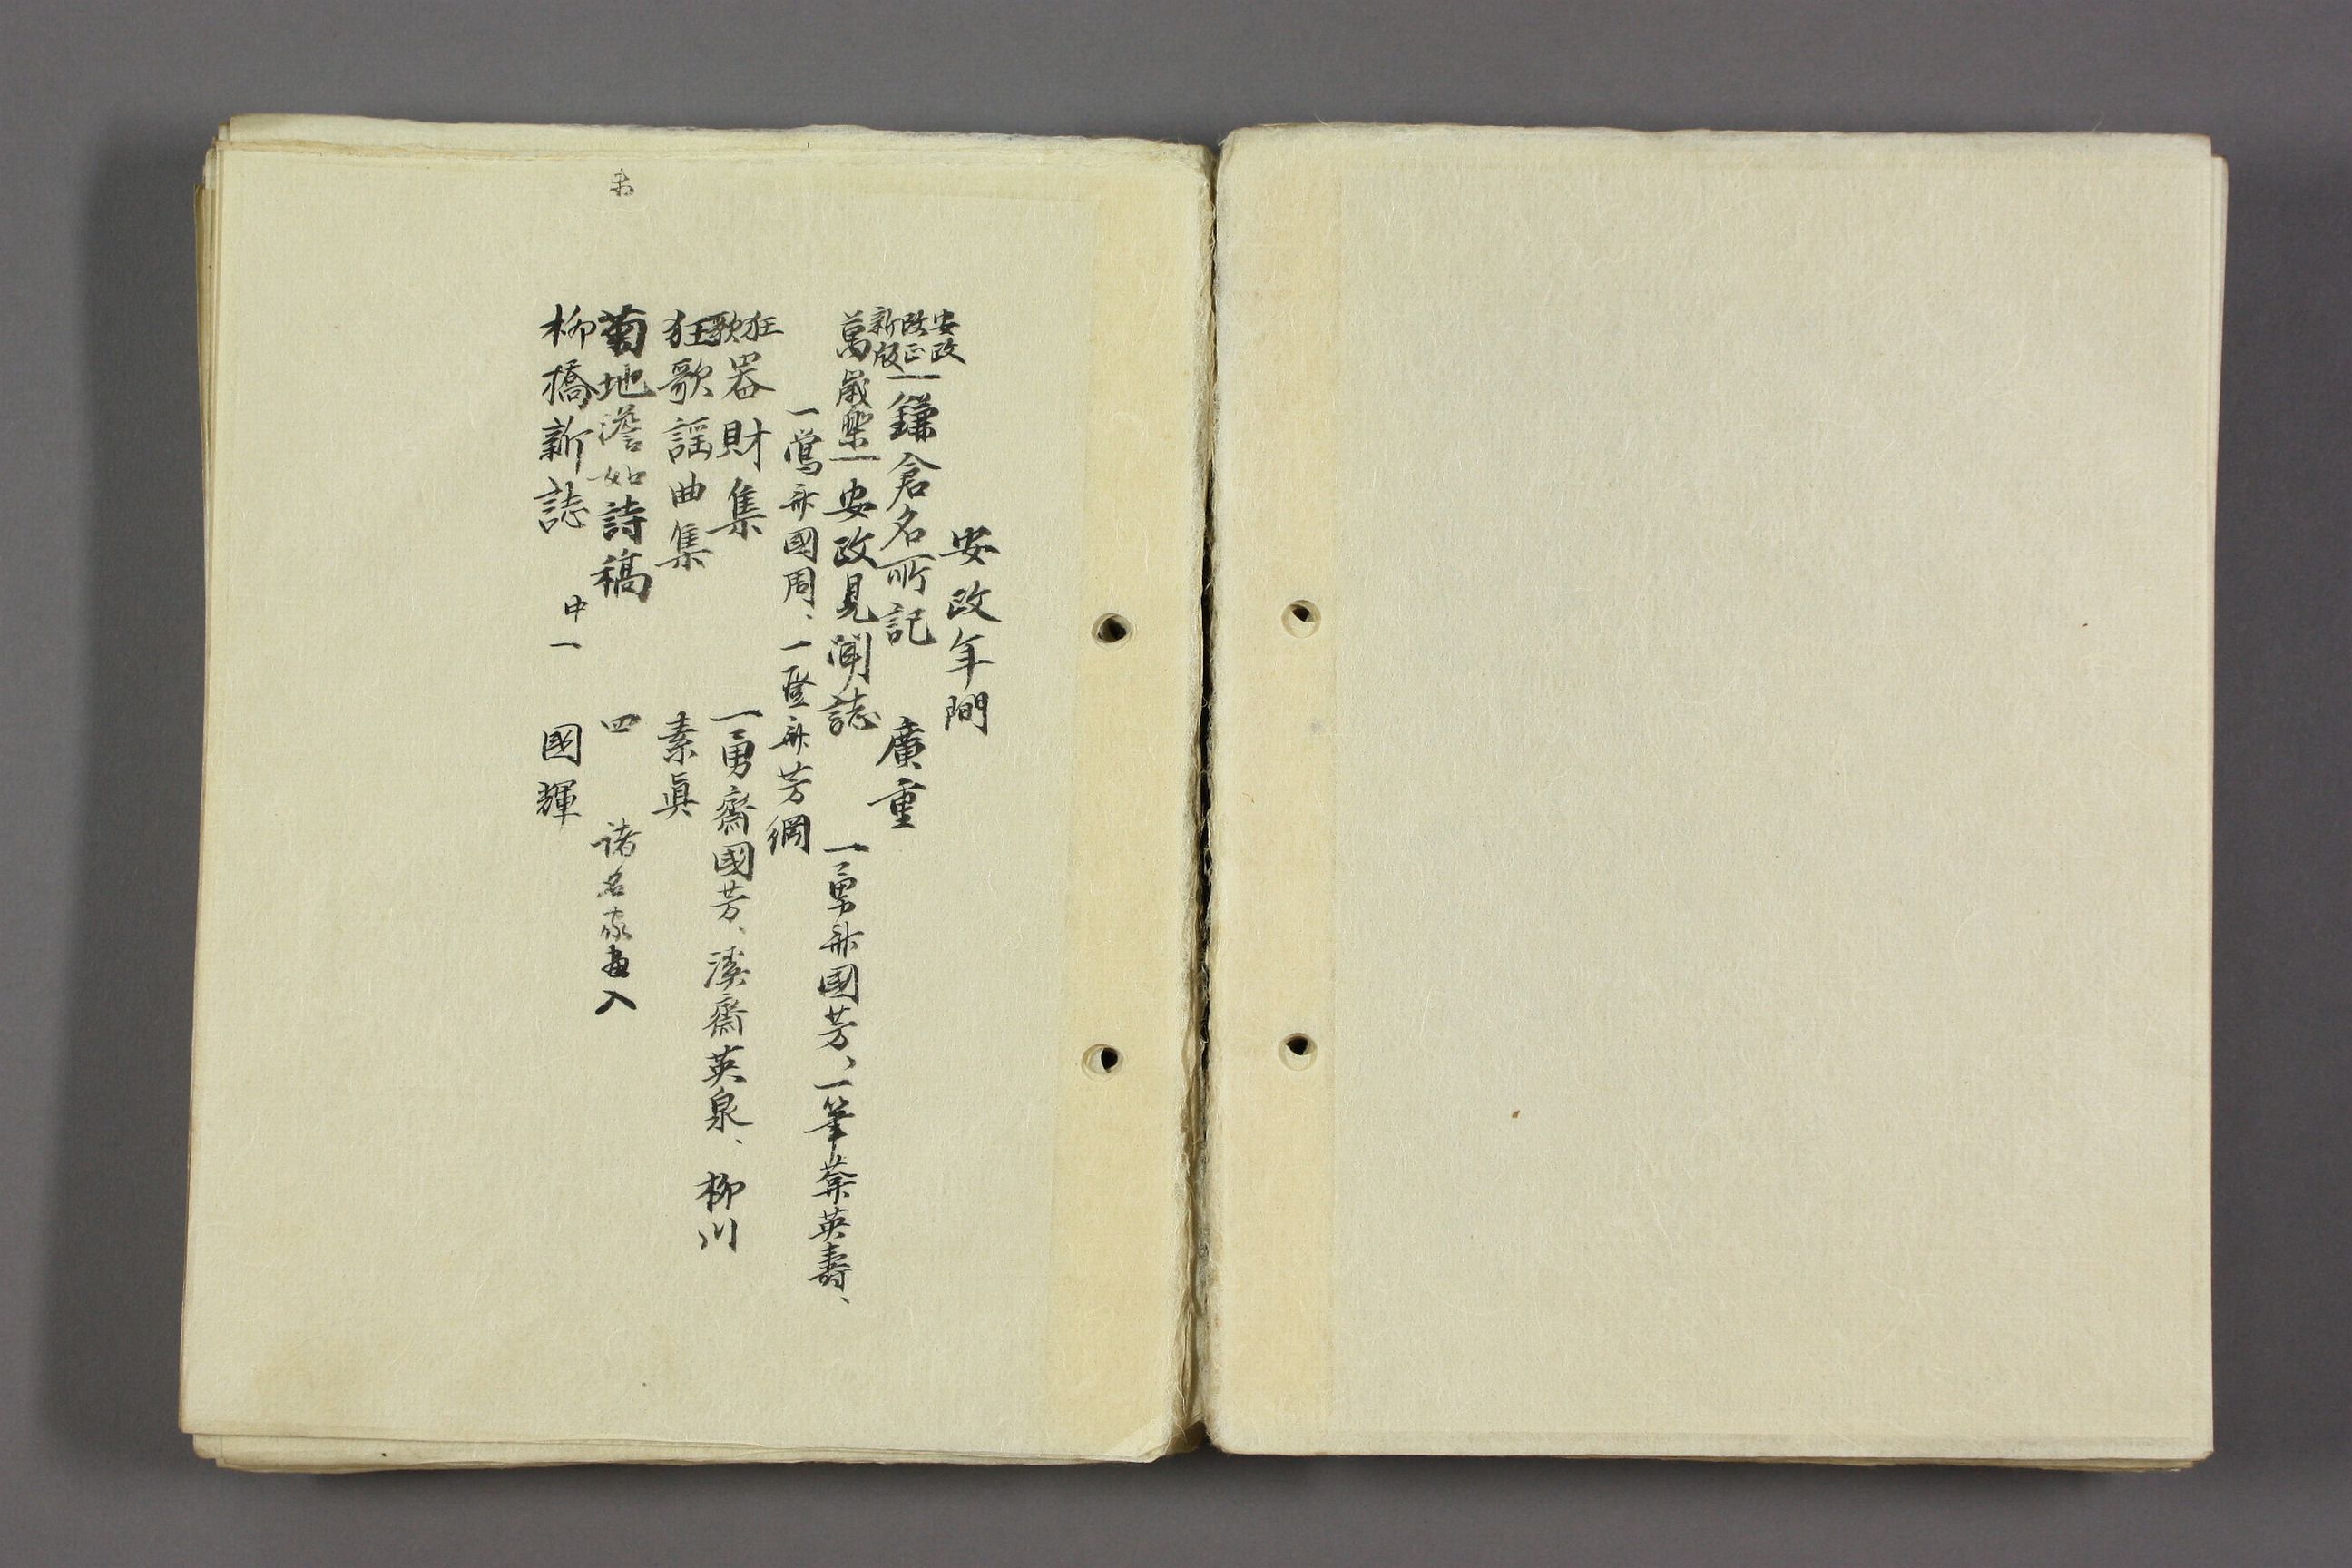 安政年間
安政
改正
新版
鎌倉名所記 廣重
萬歳樂 安政見聞誌 一勇斎國芳、一筆菴英壽、
一鶯斎國周、一登斎芳綱
狂歌 器財集 一勇齋國芳、溪齋英泉、柳川
狂歌謡曲集 素眞
菊地澹如詩稿 四 諸名家画入
柳橋新誌 中一 國輝